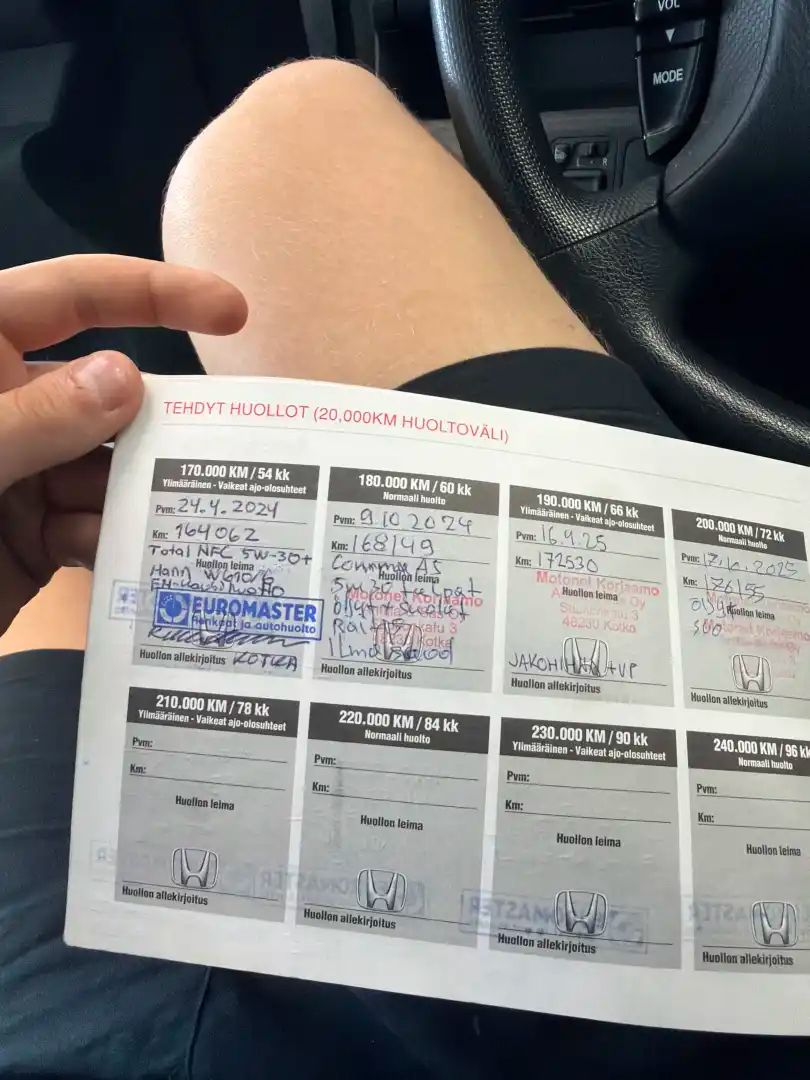 VOL
MODE
R
TEHDYT HUOLLOT (20,000KM HUOLTOVÄLI)
170.000 KM / 54 kk
Ylimääräinen - Vaikeat ajo-olosuhteet
Pvm: 24.4.2024
Km: 164062
Total NFC 5W-30+
Huollon leima
Hann W610/6
EUROMASTER
Renkaat ja autohuolto
Huollon allekirjoitus KOTKA
180.000 KM / 60 kk
Normaali huolto
Pvm: 9.10 2024
Km: 168149
Comma AS
Huollon leima
5w30
Motonet Korjaamo
Öljyt + suodat
48230 Kotka
Huollon allekirjoitus
190.000 KM / 66 kk
Ylimääräinen - Vaikeat ajo-olosuhteet
Pvm: 16.4.25
Km: 172530
Motonet Korjaamo
Huollon leima
48230 Kotka
JAKOHIHNA + VP
Huollon allekirjoitus
200.000 KM / 72 kk
Normaali huolto
Pvm:
Km: 176155
Huollon leima
Motonet Korjaamo
Huollon allekirjoitus
210.000 KM / 78 kk
Ylimääräinen - Vaikeat ajo-olosuhteet
Pvm:
Km:
Huollon leima
Huollon allekirjoitus
220.000 KM / 84 kk
Normaali huolto
Pvm:
Km:
Huollon leima
Huollon allekirjoitus
230.000 KM / 90 kk
Ylimääräinen - Vaikeat ajo-olosuhteet
Pvm:
Km:
Huollon leima
Huollon allekirjoitus
240.000 KM / 96 kk
Normaali huolto
Pvm:
Km:
Huollon leima
Huollon allekirjoitus